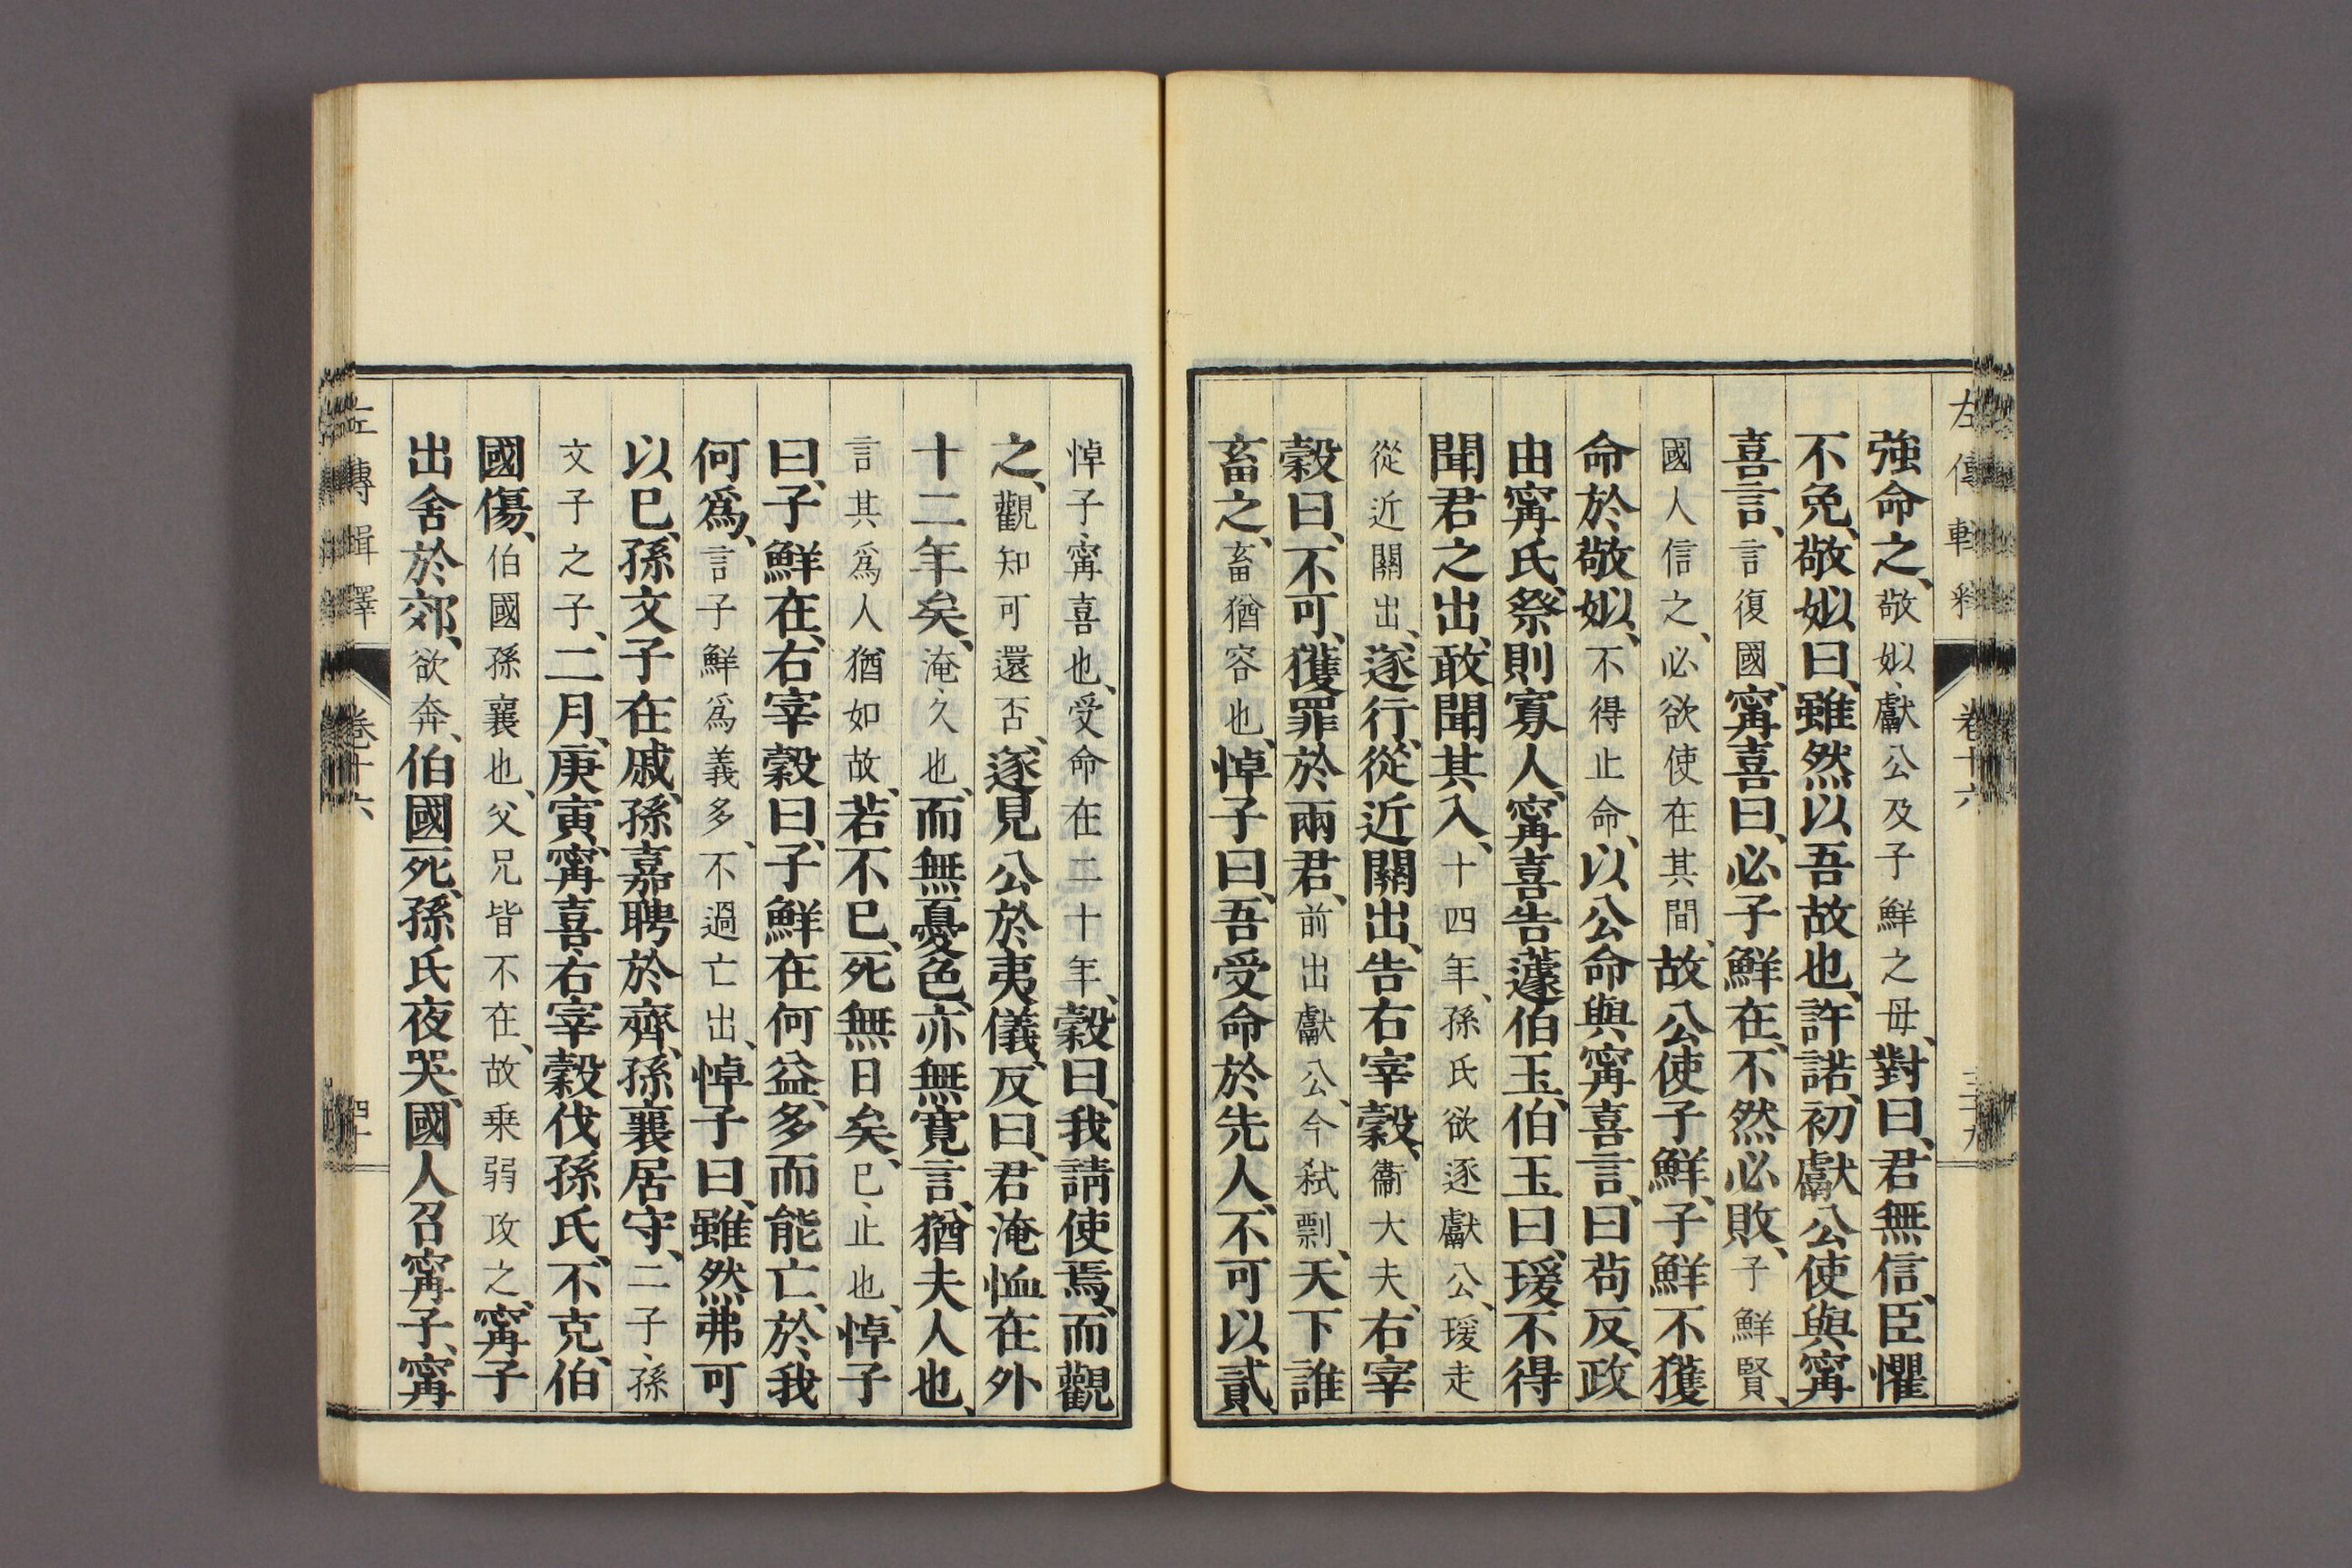 強命之、敬姒、獻公及子鮮之母、對曰、君無信、臣懼
不免、敬姒曰、雖然以吾故也、許諾、初獻公使與甯
喜言、言復國、甯喜曰、必子鮮在、不然必敗、子鮮賢、
國人信之、必欲使在其間、故公使子鮮、子鮮不獲
命於敬姒、不得止命、以公命與甯喜言、曰苟反、政
由甯氏、祭則寡人、甯喜告蘧伯玉、伯玉曰、瑗不得
聞君之出、敢聞其入、十四年、孫氏欲逐獻公、瑗走
從近關出、遂行、從近關出、告右宰穀、衞大夫、右宰
穀曰、不可、獲罪於兩君、前出獻公、今弑剽、天下誰
畜之、畜猶容也、悼子曰、吾受命於先人、不可以貳、
悼子、甯喜也、受命在二十年、穀曰、我請使焉、而觀
之、觀知可還否、遂見公於夷儀、反曰、君淹恤在外
十二年矣、淹、久也、而無憂色、亦無寬言、猶夫人也、
言其爲人猶如故、若不已、死無日矣、已、止也、悼子
曰、子鮮在、右宰穀曰、子鮮在何益、多而能亡、於我
何爲、言子鮮爲義多、不過亡出、悼子曰、雖然弗可
以已、孫文子在戚、孫嘉聘於齊、孫襄居守、二子、孫
文子之子、二月、庚寅、甯喜、右宰穀伐孫氏、不克、伯
國傷、伯國孫襄也、父兄皆不在、故乗弱攻之、甯子
出舍於郊、欲奔、伯國死、孫氏夜哭、國人召甯子、甯
卷十六
左傳輯釋
卷十六
四十